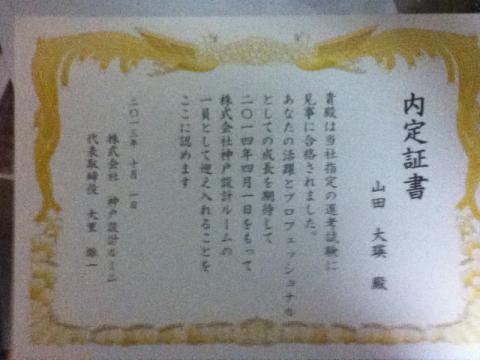 内定証書
山田 大瑛 殿
貴殿は当社指定の選考試験に
見事に合格されました。
あなたの活躍とプロフェッショナル
としての成長を期待して
二〇一四年四月一日をもって
株式会社神戸設計ルームの
一員として迎え入れることを
ここに認めます
二〇一三年 十月 一日
株式会社 神戸設計ルーム
代表取締役 大里 雄一